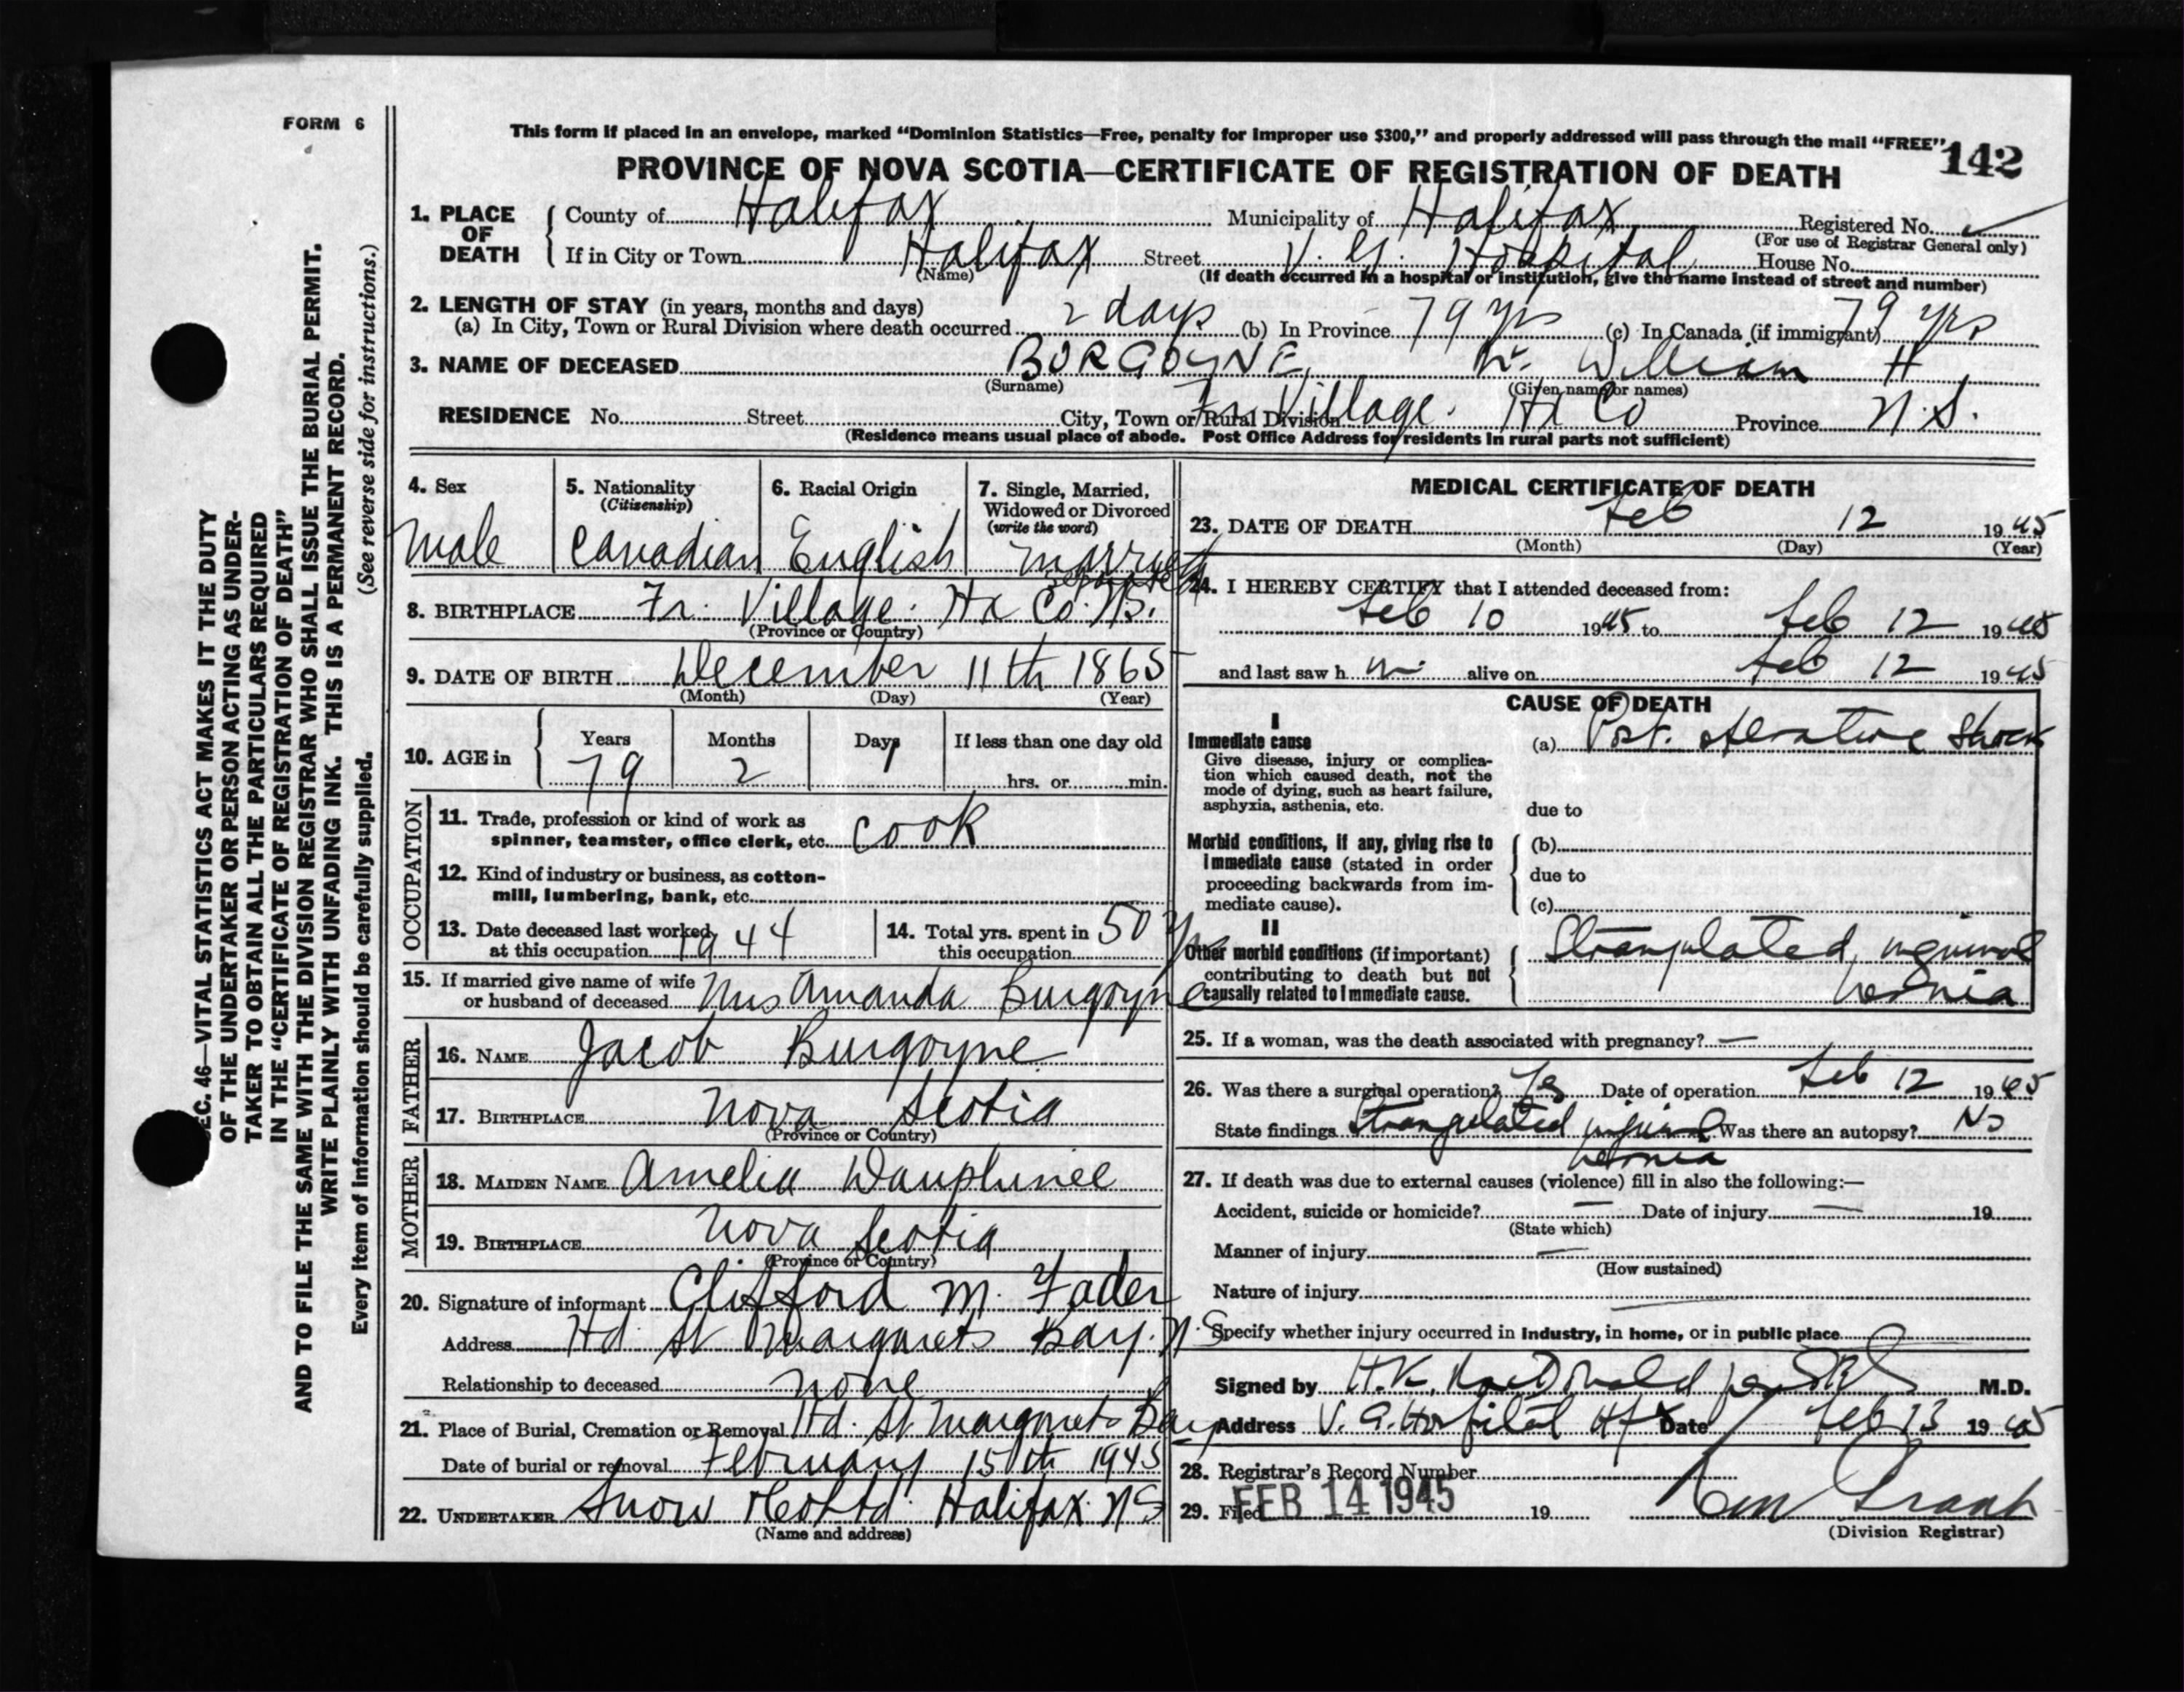 FORM 6
This form if placed in an envelope, marked "Dominion Statistics—Free, penalty for improper use $300," and properly addressed will pass through the mail "FREE"
142
PROVINCE OF NOVA SCOTIA—CERTIFICATE OF REGISTRATION OF DEATH
SEC. 46—VITAL STATISTICS ACT MAKES IT THE DUTY
OF THE UNDERTAKER OR PERSON ACTING AS UNDER-
TAKER TO OBTAIN ALL THE PARTICULARS REQUIRED
IN THE "CERTIFICATE OF REGISTRATION OF DEATH"
AND TO FILE THE SAME WITH THE DIVISION REGISTRAR WHO SHALL ISSUE THE BURIAL PERMIT.
WRITE PLAINLY WITH UNFADING INK. THIS IS A PERMANENT RECORD.
Every item of information should be carefully supplied. (See reverse side for instructions.)
1. PLACE OF DEATH
County of Halifax Municipality of Halifax Registered No.
(For use of Registrar General only)
If in City or Town Halifax Street V. G. Hospital House No.
(Name) (If death occurred in a hospital or institution, give the name instead of street and number)
2. LENGTH OF STAY (in years, months and days)
(a) In City, Town or Rural Division where death occurred 2 days (b) In Province 79 yrs (c) In Canada (if immigrant) 79 yrs
3. NAME OF DECEASED BURGOYNE, William H
(Surname) (Given name or names)
RESIDENCE No. Street City, Town or Rural Division Fr. Village. Hx Co Province N.S.
(Residence means usual place of abode. Post Office Address for residents in rural parts not sufficient)
4. Sex
male
5. Nationality
(Citizenship)
Canadian
6. Racial Origin
English
7. Single, Married,
Widowed or Divorced
(write the word)
married
separated
8. BIRTHPLACE Fr. Village. Hx Co. N.S.
(Province or Country)
9. DATE OF BIRTH December 11th 1865
(Month) (Day) (Year)
10. AGE in
Years Months Days If less than one day old
79 2 1 hrs. or min.
OCCUPATION
11. Trade, profession or kind of work as
spinner, teamster, office clerk, etc. Cook
12. Kind of industry or business, as cotton-
mill, lumbering, bank, etc.
13. Date deceased last worked
at this occupation 1944
14. Total yrs. spent in
this occupation 50 yrs
15. If married give name of wife
or husband of deceased Mrs Amanda Burgoyne
FATHER
16. NAME Jacob Burgoyne
17. BIRTHPLACE Nova Scotia
(Province or Country)
MOTHER
18. MAIDEN NAME Amelia Dauphinee
19. BIRTHPLACE Nova Scotia
(Province or Country)
20. Signature of informant Clifford M. Fader
Address Hd. St Margarets Bay. N.S
Relationship to deceased none
21. Place of Burial, Cremation or Removal Hd. St Margarets Bay
Date of burial or removal February 15th 1945
22. UNDERTAKER Snow & Co Ltd. Halifax. NS
(Name and address)
MEDICAL CERTIFICATE OF DEATH
23. DATE OF DEATH Feb 12 1945
(Month) (Day) (Year)
24. I HEREBY CERTIFY that I attended deceased from:
Feb 10 1945 to Feb 12 1945
and last saw h m alive on Feb 12 1945
CAUSE OF DEATH
I
Immediate cause
Give disease, injury or complica-
tion which caused death, not the
mode of dying, such as heart failure,
asphyxia, asthenia, etc.
(a) Post. operative Shock
due to
Morbid conditions, if any, giving rise to
immediate cause (stated in order
proceeding backwards from im-
mediate cause).
(b)
due to
(c)
II
Other morbid conditions (if important)
contributing to death but not
causally related to immediate cause.
Strangulated inguinal
hernia
25. If a woman, was the death associated with pregnancy? —
26. Was there a surgical operation? Yes Date of operation Feb 12 1945
State findings Strangulated inguinal hernia Was there an autopsy? No
27. If death was due to external causes (violence) fill in also the following:—
Accident, suicide or homicide? — Date of injury — 19
(State which)
Manner of injury —
(How sustained)
Nature of injury
Specify whether injury occurred in industry, in home, or in public place
Signed by H.K. MacDonald per M.D.
Address V. G. Hospital Hfx Date Feb 13 1945
28. Registrar's Record Number
29. Filed FEB 14 1945 19
(Division Registrar)